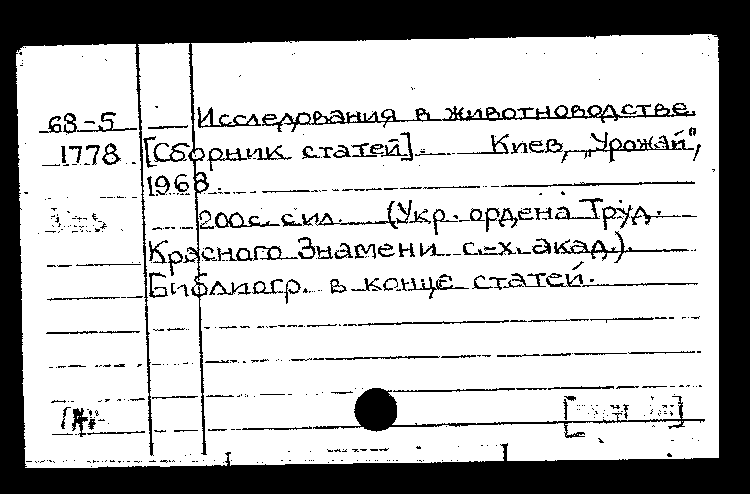 68-5 Исследования в животноводстве.
1778 [Сборник статей]. Киев, „Урожай",
1968.
200 с. с ил. (Укр. ордена Труд.
Красного Знамени с.-х. акад.).
Библиогр. в конце статей.